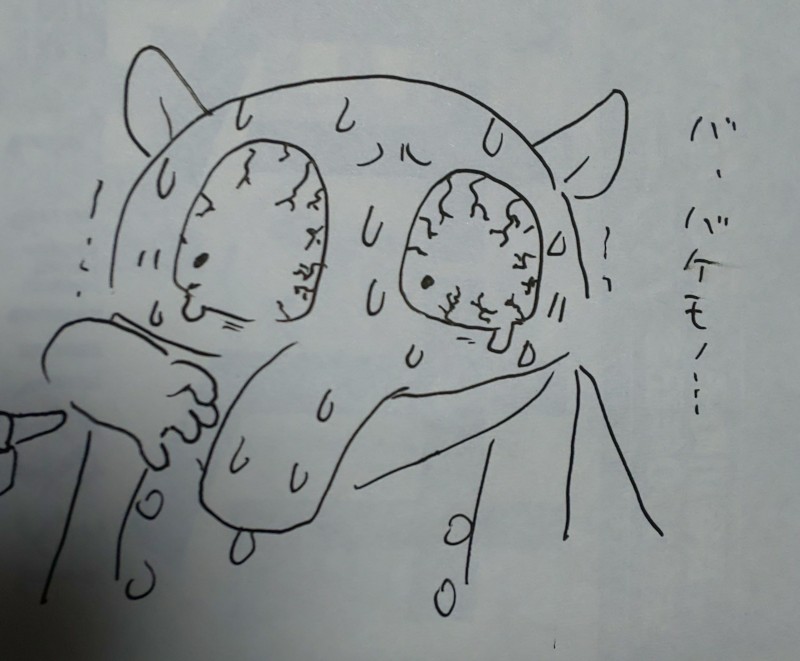 バ、バケモノ…